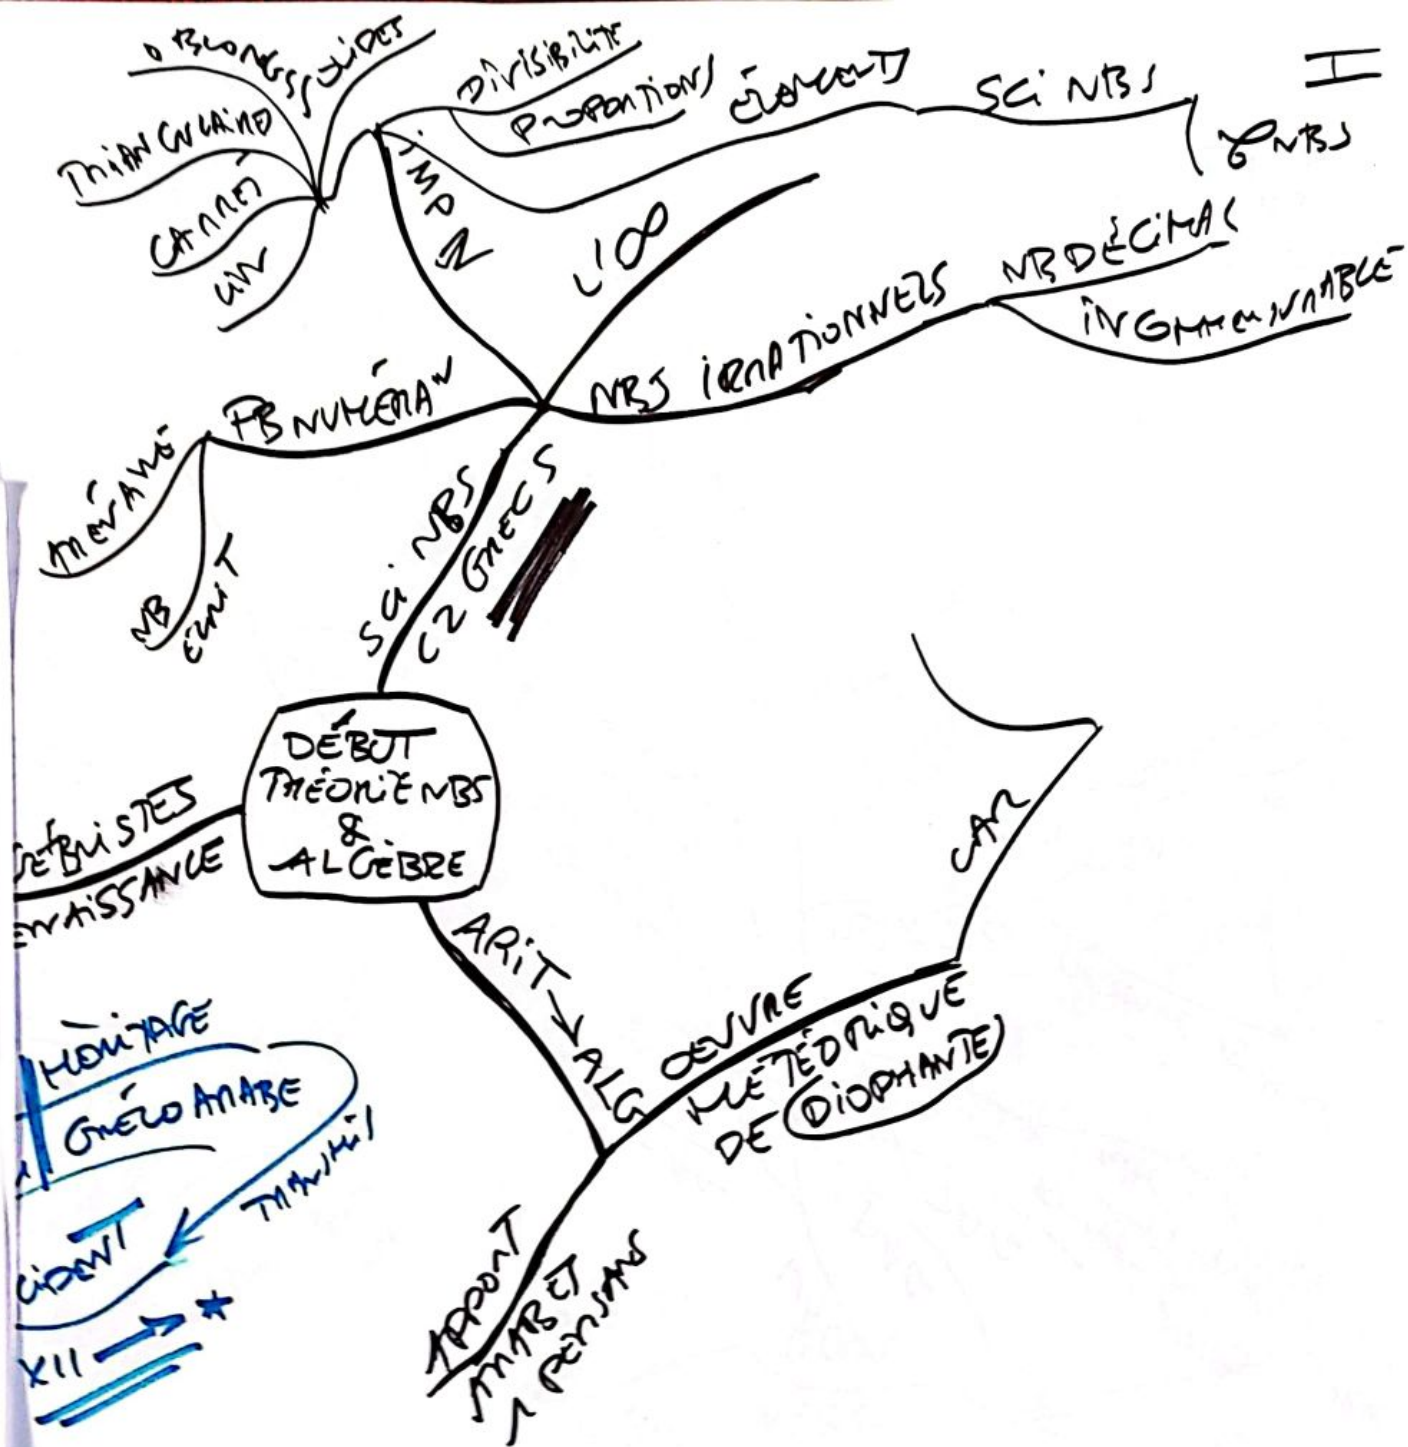 OBLONGS
SOLIDES
TRIANGULAIRE
CARRÉ
DIVISIBILITÉ
PROPORTIONS
ÉLÉMENTS
SCI NBS
I
NBS
IMP
L'∞
NBS IRRATIONNELS
NB DÉCIMAL
INCOMMENSURABLE
PB NUMÉRAN
NB
ÉCRIT
SCI NBS
CZ GRECS
DÉBUT
THÉORIE NBS
&
ALGÈBRE
GÉBRISTES
ENAISSANCE
ARIT → ALG
OEUVRE
MÉTÉORIQUE
DE DIOPHANTE
CAR
APPORT
ARABES
PERSANS
HÉRITAGE
GRÉCO ARABE
TRANSMIS
CIDENT
XII → *